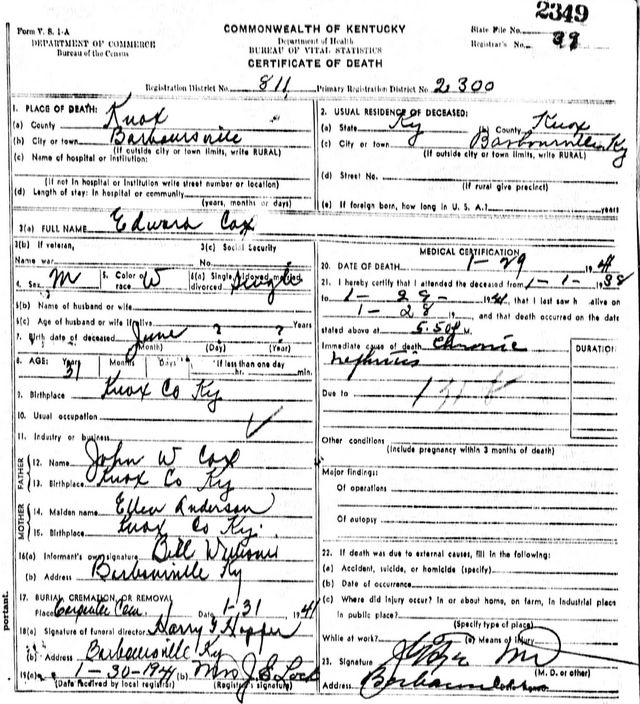 2349
Form V. S. 1-A
COMMONWEALTH OF KENTUCKY
State File No.
DEPARTMENT OF COMMERCE
Department of Health
Registrar's No. 39
Bureau of the Census
BUREAU OF VITAL STATISTICS
CERTIFICATE OF DEATH
Registration District No. 811 Primary Registration District No. 2300
1. PLACE OF DEATH:
(a) County Knox
(b) City or town Barboursville
(If outside city or town limits, write RURAL)
(c) Name of hospital or institution:
(If not in hospital or institution write street number or location)
(d) Length of stay: In hospital or community
(years, months or days)
2. USUAL RESIDENCE OF DECEASED:
(a) State Ky (b) County Knox
(c) City or town Barboursville Ky
(If outside city or town limits, write RURAL)
(d) Street No.
(If rural give precinct)
(e) If foreign born, how long in U. S. A.? years
3(a) FULL NAME Edward Cox
3(b) If veteran, 3(c) Social Security
Name war No.
4. Sex M 5. Color or race W 6(a) Single, widowed, married, divorced Single
6(b) Name of husband or wife
6(c) Age of husband or wife if alive ? ? Years
7. Birth date of deceased June
(Month) (Day) (Year)
8. AGE: Years Months Days If less than one day
37 hr. min.
9. Birthplace Knox Co Ky
10. Usual occupation
11. Industry or business
FATHER
12. Name John W Cox
13. Birthplace Knox Co Ky
MOTHER
14. Maiden name Ellen Anderson
15. Birthplace Knox Co Ky.
16(a) Informant's own signature Bill Williams
(b) Address Barbourville Ky
17. BURIAL, CREMATION, OR REMOVAL
Place Carpenter Cem Date 1-31 1941
18(a) Signature of funeral director Harry F Hopper
(b) Address Barboursville Ky
19(a) 1-30-1941 (b) Mrs J.S. Lock
(Date received by local registrar) (Registrar's signature)
portant.
MEDICAL CERTIFICATION
20. DATE OF DEATH 1-29 1941
21. I hereby certify that I attended the deceased from 1-1-1938
to 1-29-1941, that I last saw h alive on
1-28 19 , and that death occurred on the date
stated above at 5.50 M.
Immediate cause of death Chronic
DURATION
nephritis
Due to
Other conditions
(Include pregnancy within 3 months of death)
Major findings:
Of operations
Of autopsy
22. If death was due to external causes, fill in the following:
(a) Accident, suicide, or homicide (specify)
(b) Date of occurrence
(c) Where did injury occur? In or about home, on farm, in industrial place
in public place?
(Specify type of place)
While at work? (e) Means of injury
23. Signature
(M. D. or other)
Address